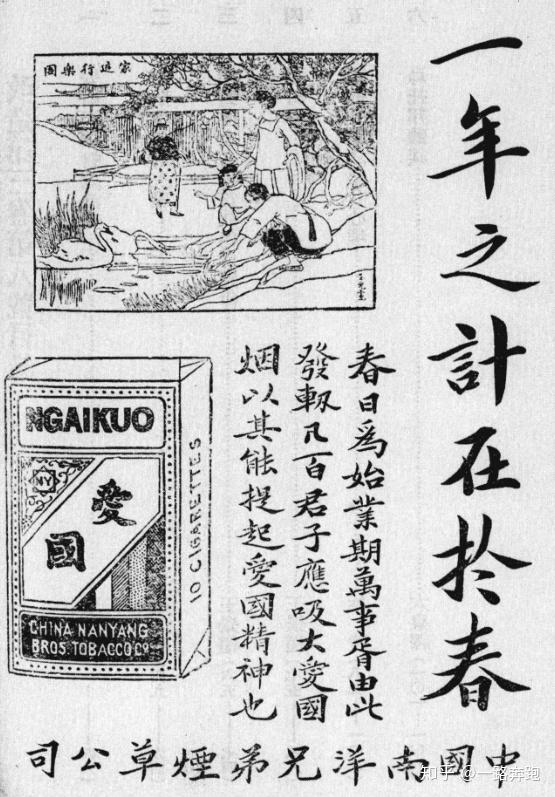 一年之計在於春
家庭行樂圖
春日爲始業期萬事胥由此
發軔凡百君子應吸大愛國
烟以其能提起愛國精神也
NGAIKUO
NY
愛
國
CHINA NANYANG
BROS. TOBACCO Co
10 CIGARETTES
中國南洋兄弟煙草公司
知乎 @一路奔跑